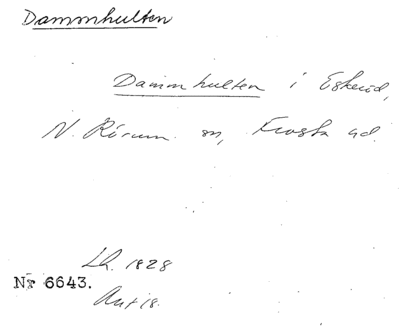 Dammhulten
Dammhulten i Eskeröd,
N. Rörum sn, Frosta hd.
Lh. 1828
Nr 6643.
Akt 18.